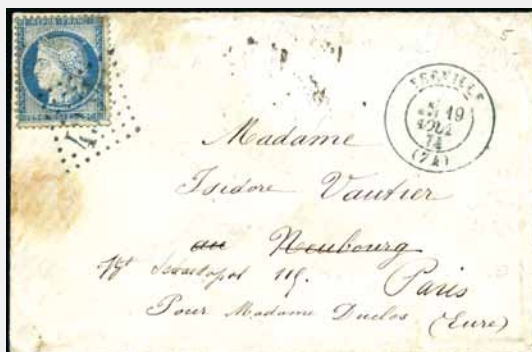 5
19
AOUT
74
(74)
Madame
Isidore Vautier
au Neubourg
Sebastopol 115.
Paris
Pour Madame Duclos (Eure)